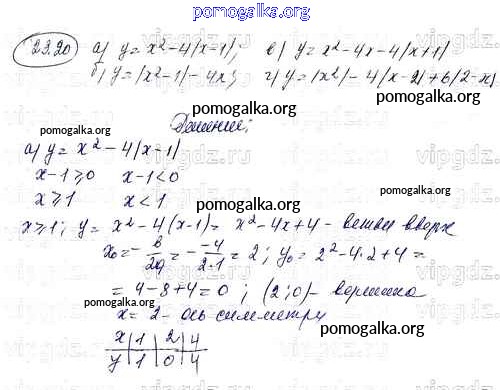 pomogalka.org
23.20 а) y = x² - 4|x-1|; в) y = x² - 4x - 4|x+1|
б) y = |x²-1| - 4x; г) y = |x²| - 4|x-2| + 6|2-x|
pomogalka.org
Решение:
pomogalka.org
а) y = x² - 4|x-1|
x-1≥0 x-1<0
pomogalka.org
x≥1 x<1
x≥1; y = x² - 4(x-1) = x² - 4x + 4 - ветви вверх
x₀ = -b/2a = -(-4)/2·1 = 2; y₀ = 2² - 4·2 + 4 =
= 4 - 8 + 4 = 0; (2;0) - вершина
pomogalka.org
x = 2 - ось симметрии
pomogalka.org
x | 1 | 2 | 4
y | 1 | 0 | 4
pomogalka.org
vipgdz.ru